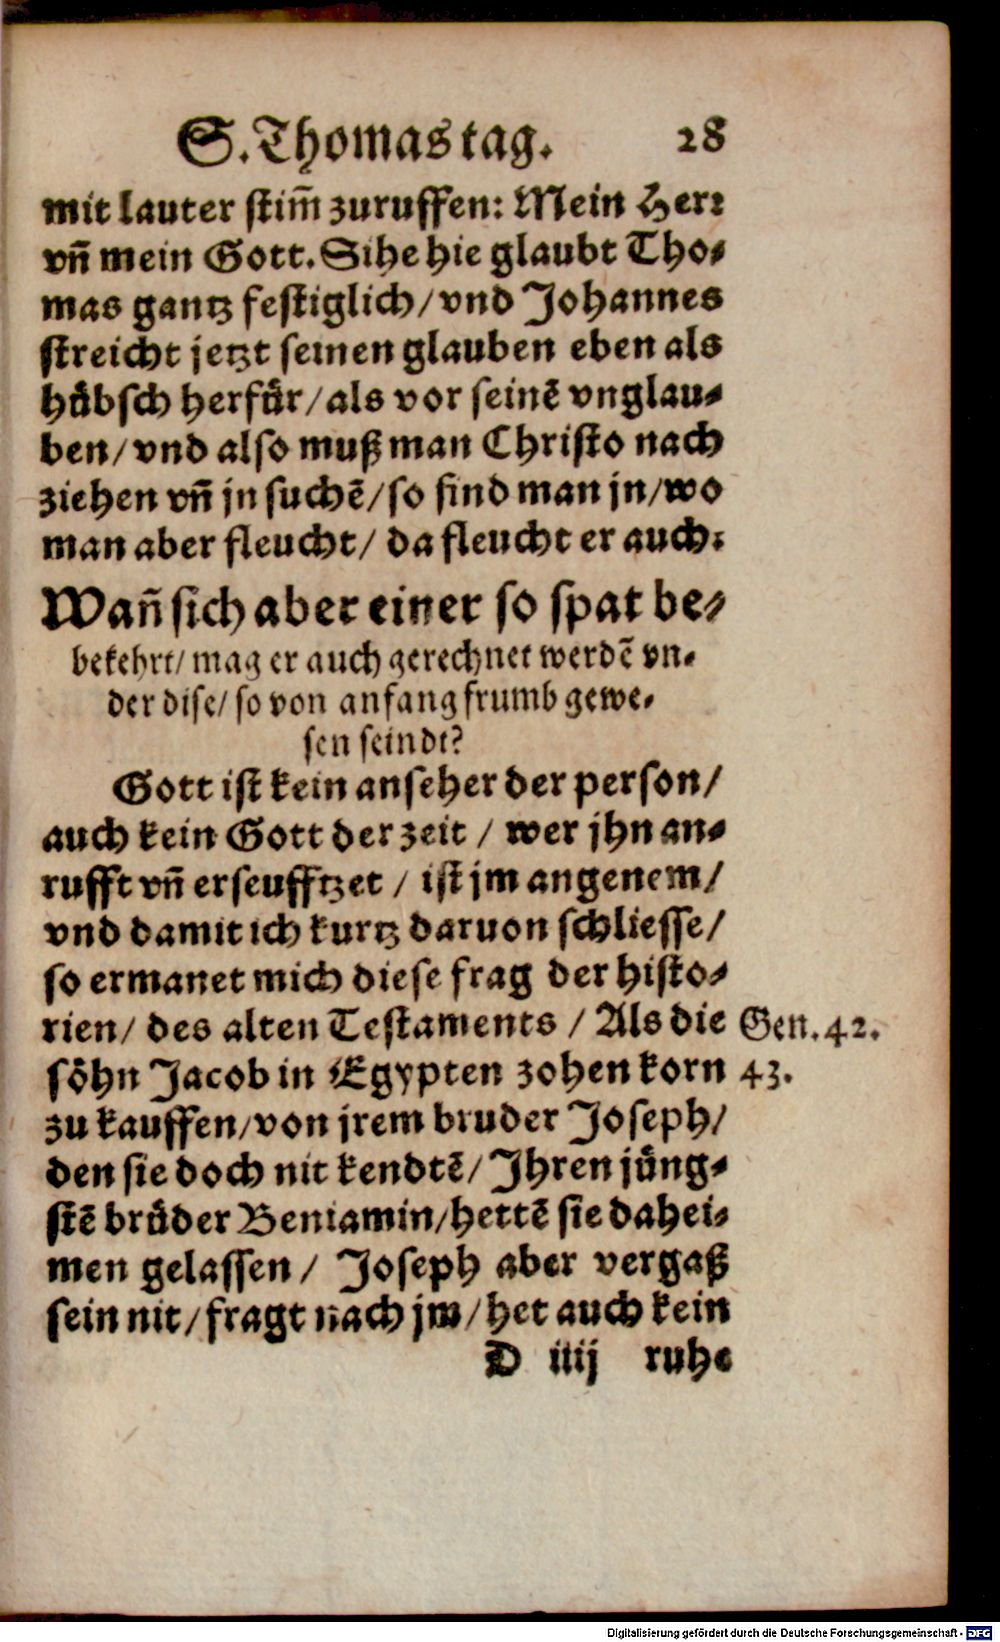 S. Thomas tag. 28
mit lauter stim̃ zuruffen: Mein Herꝛ
vñ mein Gott. Sihe hie glaubt Tho-
mas gantz festiglich/ vnd Johannes
streicht jetzt seinen glauben eben als
huͤbsch herfuͤr/ als vor seinē vnglau-
ben/ vnd also muß man Christo nach
ziehen vñ jn suchē/ so find man jn/ wo
man aber fleucht/ da fleucht er auch.
Wañ sich aber einer so spat be-
bekehrt/ mag er auch gerechnet werdē vn-
der dise/ so von anfang frumb gewe-
sen seindt?
Gott ist kein anseher der person/
auch kein Gott der zeit / wer jhn an-
rufft vñ erseufftzet / ist jm angenem/
vnd damit ich kurtz daruon schliesse/
so ermanet mich diese frag der histo-
rien/ des alten Testaments / Als die Gen. 42.
soͤhn Jacob in Egypten zohen korn 43.
zu kauffen/ von jrem bruder Joseph/
den sie doch nit kendtē/ Jhren juͤng-
stē bruͤder Beniamin/ hettē sie dahei-
men gelassen/ Joseph aber vergaß
sein nit/ fragt nach jm/ het auch kein
D iiij ruhe
Digitalisierung gefördert durch die Deutsche Forschungsgemeinschaft - DFG